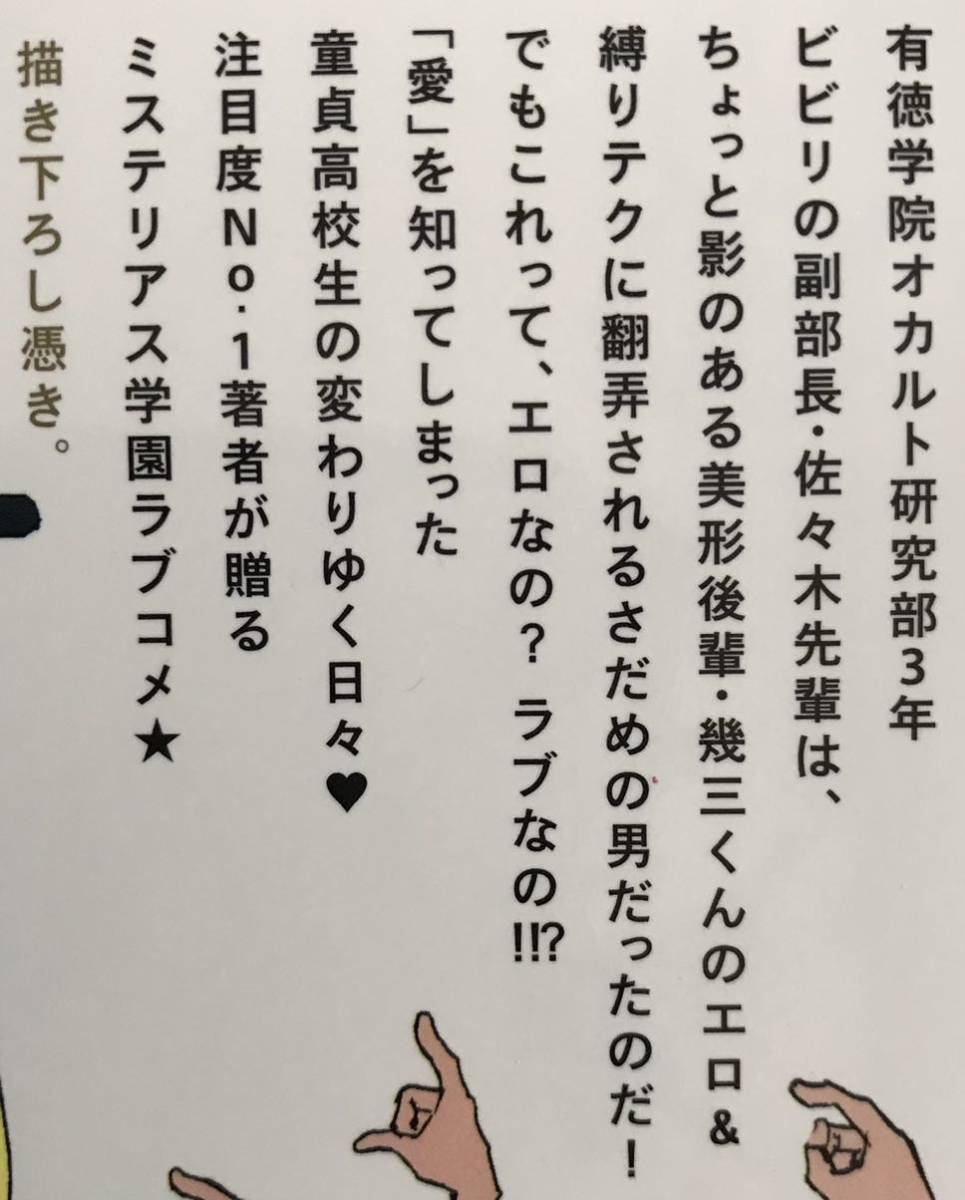 有徳学院オカルト研究部3年
ビビリの副部長・佐々木先輩は、
ちょっと影のある美形後輩・幾三くんのエロ&
縛りテクに翻弄されるさだめの男だったのだ！
でもこれって、エロなの？ ラブなの!!?
「愛」を知ってしまった
童貞高校生の変わりゆく日々♥
注目度No.1著者が贈る
ミステリアス学園ラブコメ★
描き下ろし憑き。